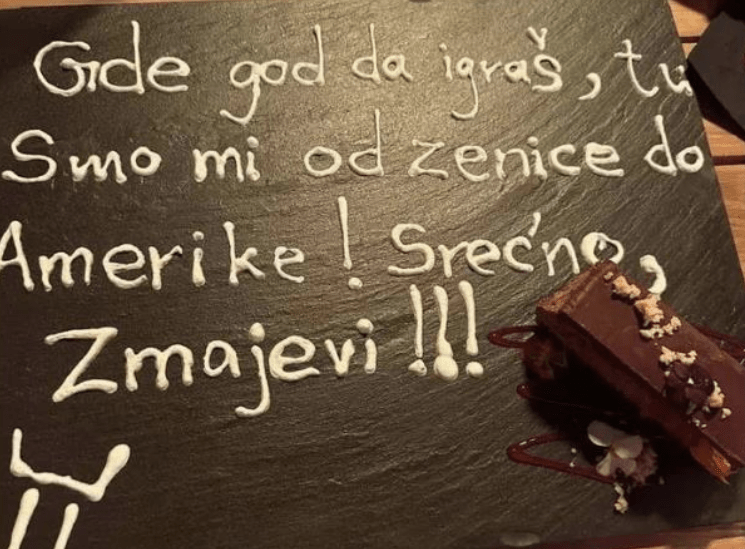 Gde god da igraš, tu
Smo mi od zenice do
Amerike! Srećno,
Zmajevi!!!